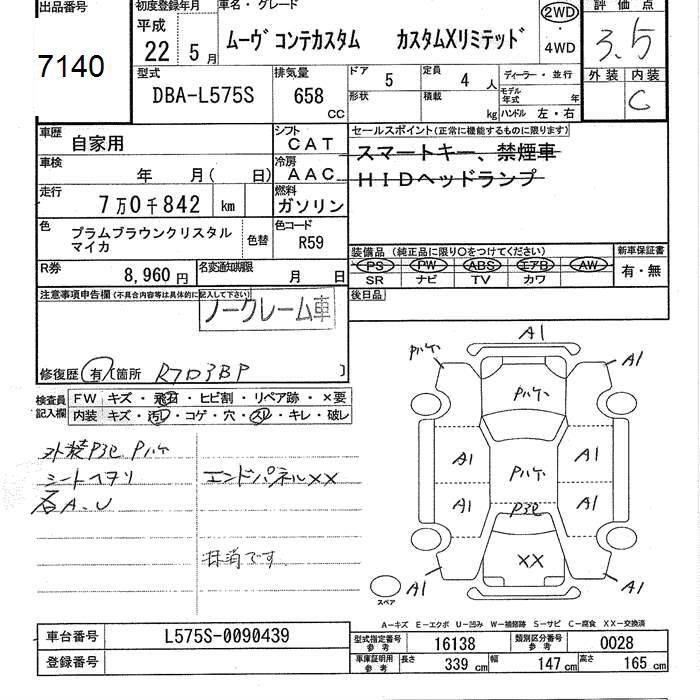 出品番号
7140
初度登録年月
平成
22 5月
車名・グレード
ムーヴ コンテカスタム カスタムXリミテッド
2WD
・
4WD
評価点
3.5
外装 内装
C
型式
DBA-L575S
排気量
658
CC
ドア
5
定員
4人
形状
積載
kg
ディーラー・並行
モデル年式 年
ハンドル 左・右
車歴
自家用
シフト
CAT
車検
年 月( 日)
冷房
AAC
走行
7万0千842 km
燃料
ガソリン
色
プラムブラウンクリスタル
マイカ
色替
色コード
R59
R券
8,960円
名変通知期限
月 日
セールスポイント(正常に機能するものに限ります)
スマートキー、禁煙車
HIDヘッドランプ
装備品 (純正品に限り○をつけてください)
PS PW ABS エアB AW
SR ナビ TV カワ
新車保証書
有・無
後日品
注意事項申告欄(不具合内容等は具体的に記入して下さい)
ノークレーム車
修復歴 有 箇所 R7D3BP
検査員
記入欄
FW キズ・飛石・ヒビ割・リペア跡・×要
内装 キズ・汚レ・コゲ・穴・スレ・キレ・破レ
外装P3セ Pハケ
シートヘタリ
エンドパネルXX
A.U
抹消です
A1
Pハケ
A1
Pハケ
A1
Pハケ
A1
A1
P3セ
A1
XX
A1
A1
スペア
A-キズ E-エクボ U-凹み W-補修跡 S-サビ C-腐食 XX-交換済
車台番号
L575S-0090439
登録番号
型式指定番号
参考
16138
類別区分番号
参考
0028
車庫証明用
参考
長さ
339cm
幅
147cm
高さ
165cm